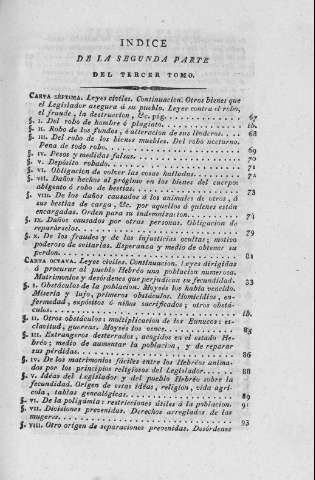 INDICE
DE LA SEGUNDA PARTE
DEL TERCER TOMO.
CARTA SÉPTIMA. Leyes civiles. Continuacion. Otros bienes que
el Legislador asegura á su pueblo. Leyes contra el robo,
el fraude, la destruccion, &c. pag. 67
§. I. Del robo de hombre ó plagiato. Ib.
§. II. Robo de los fundos, ó alteracion de sus linderos. 68
§. III. Del robo de los bienes muebles. Del robo nocturno.
Pena de todo robo. 69
§. IV. Pesos y medidas falsas. 70
§. V. Depósito robado. 71
§. VI. Obligacion de volver las cosas halladas. 72
§. VII. Daños hechos al próximo en los bienes del cuerpo:
abigeato ó robo de bestias. 73
§. VIII. De los daños causados á los animales de otros, á
sus bestias de carga, &c. por aquellos á quienes están
encargadas. Orden para su indemnizacion. 74
§. IX. Daños causados por otras personas. Obligacion de
repararselos. 79
§. X. De los fraudes y de las injusticias ocultas; motivo
poderoso de evitarlos. Esperanza y medio de obtener su
perdon. 81
CARTA OCTAVA. Leyes civiles. Continuacion. Leyes dirigidas
á procurar al pueblo Hebréo una poblacion numerosa.
Matrimonios y desórdenes que perjudican su fecundidad. 83
§. I. Obstáculos de la poblacion. Moysés los habia vencido.
Miseria y lujo, primeros obstáculos. Homicidios, en-
fermedad, expósitos ó niños sacrificados; otros obstá-
culos. Ib.
§. II. Otros obstáculos: multiplicacion de los Eunucos: es-
clavitud, guerras. Moysés los vence. 85
§. III. Extrangeros desterrados, acogidos en el estado He-
bréo; medio de aumentar la poblacion, y de reparar
sus pérdidas. 86
§. IV. De los matrimonios fáciles entre los Hebréos anima-
dos por los principios religiosos del Legislador. 88
§. V. Ideas del Legislador y del pueblo Hebréo sobre la
fecundidad. Origen de estas ideas, religion, vida agrí-
cola, tablas genealógicas. 89
§. VI. De la poligámia: restricciones útiles á la poblacion. 91
§. VII. Divisiones prevenidas. Derechos arreglados de las
mugeres.
§. VIII. Otro origen de separaciones prevenidas. Desórdenes 93